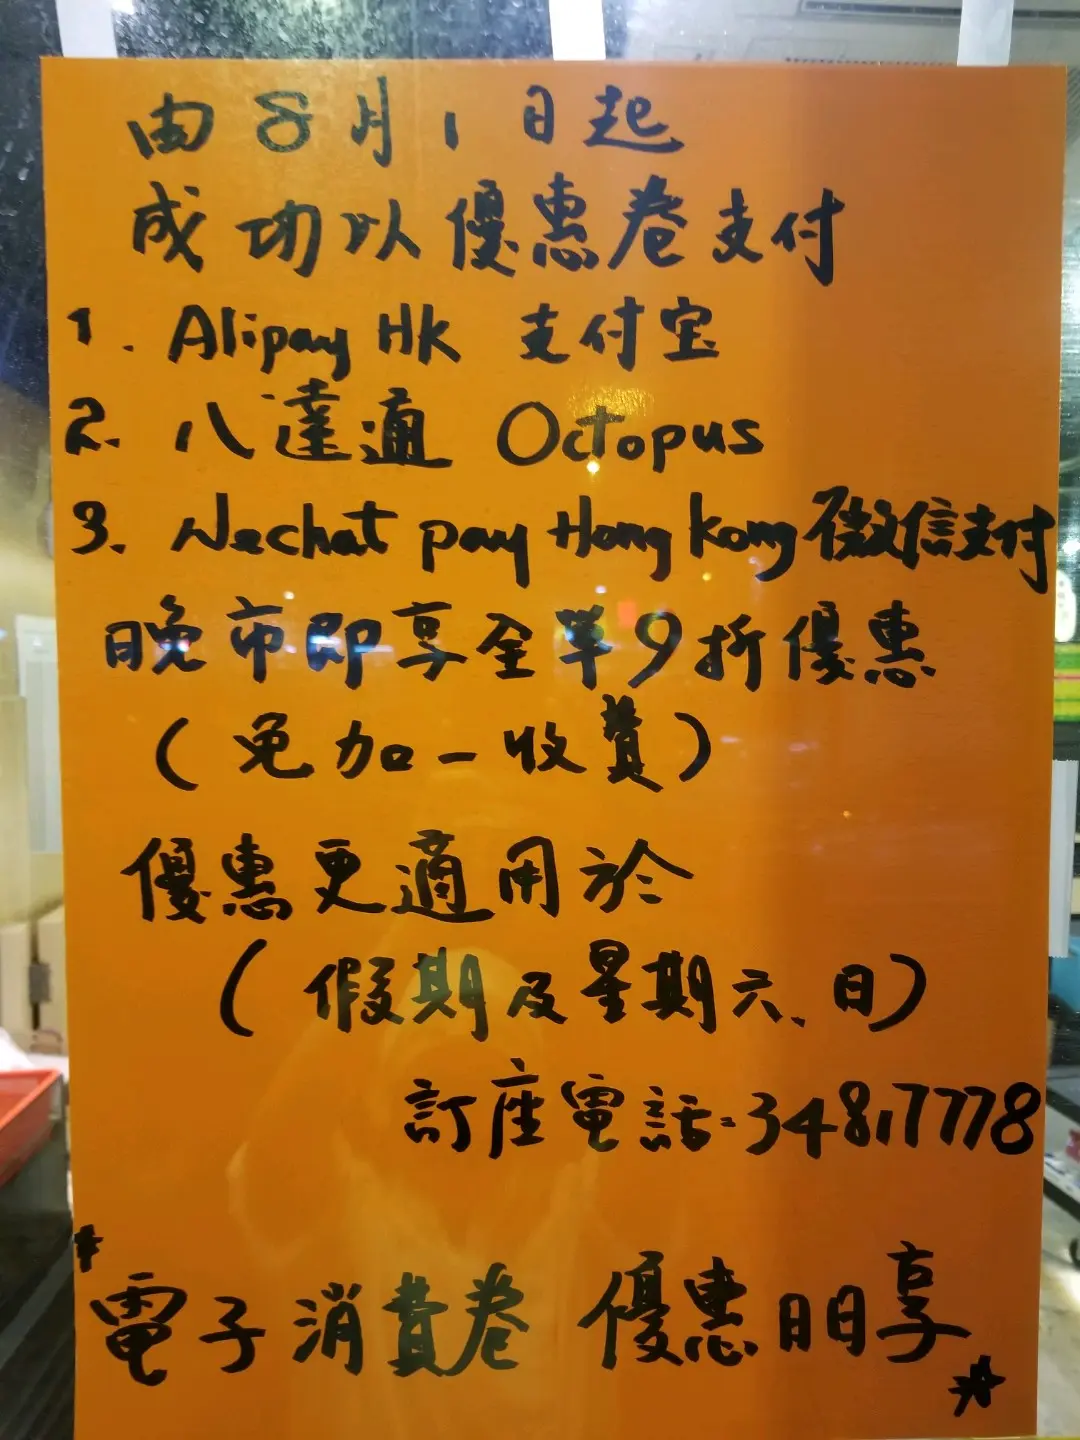 由8月1日起
成功以優惠卷支付
1. Alipay HK 支付宝
2. 八達通 Octopus
3. Wechat pay Hong kong 微信支付
晚市即享全單9折優惠
(免加一收費)
優惠更適用於
(假期及星期六、日)
訂座電話:34817778
*電子消費卷 優惠日日享*